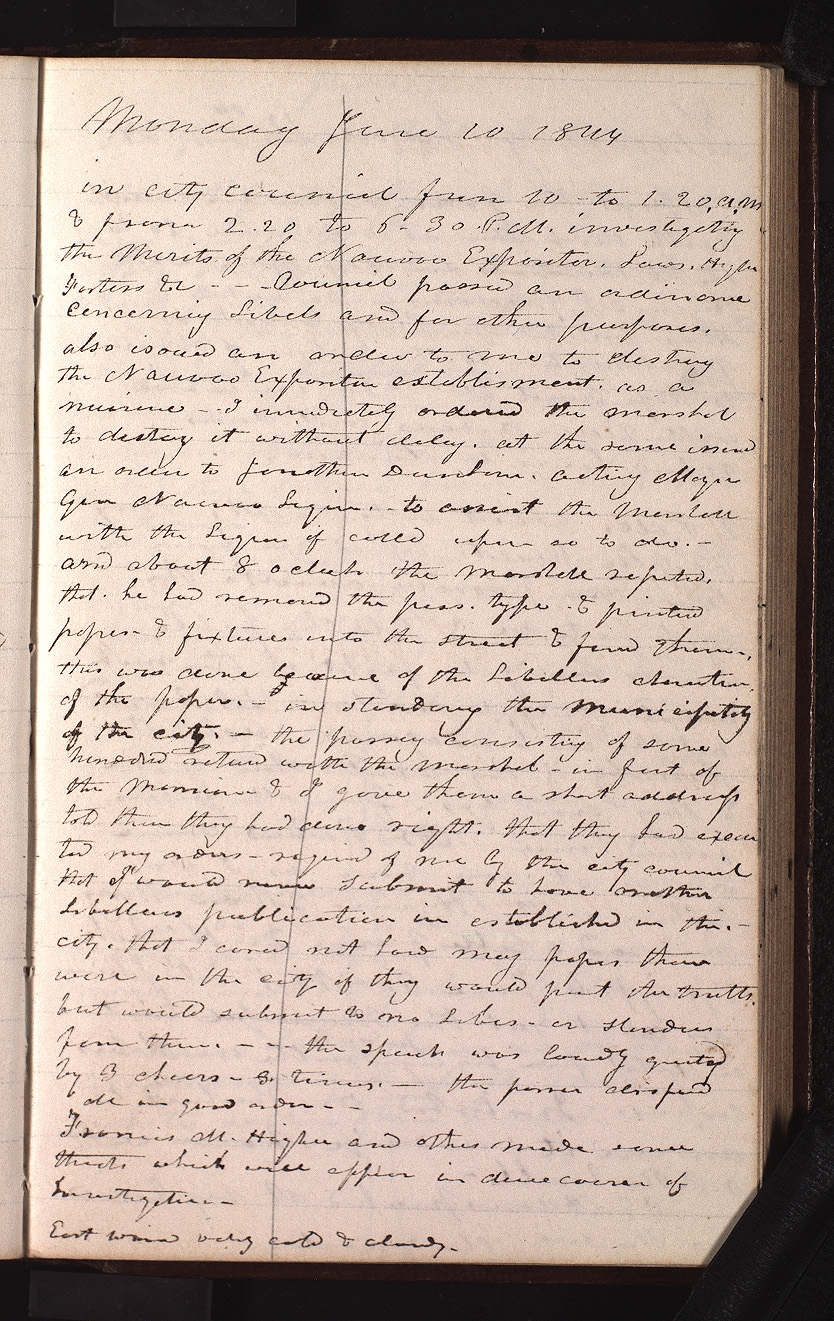 Monday June 10 1844
in city council from 10 - to 1. 20, a,m
& from 2. 20 to 6- 30 P.M. investigatig
the Merits of the Nauvoo Expositor. Laws. Higbe
Fosters &c - - - Council passed an ordinance
concerning Libels and for other purposes.
also issued an order to me to destroy
the Nauvoo Expositor establisment. as a
nuisance - I immediately ordered the marshal
to destroy it without delay. at the same issued
an order to Jonathan Dunham. acting Major
Gen Nauvoo Legion. - to assist the Marshall
with the Legion if called upon so to do. -
and about 8 oclock the Marshall reported.
that. he had removed the press. type - & printed
papers - & fixtures into the street & fired them -.
this was done because of the Libellous character
of the paper. - in slandering the Municipality
of the city. - the possey consisting of some
hundred returned with the marshal - in front of
the Mansion & I gave them a short address
told them they had done right. that they had execu
ted my orders - required of me by the city council
that I would never submit to have another
Libellous publication in established in the. -
city. that I cared not how many papers there
were in the city if they would print the truth.
but would submit to no Libes - or slanders
from them. - - - the speech was loudly greeted
by 3 cheers - 3. times. - the posse dispersed
all in good order - -
Francis M. Higbee and others made some
threats which will appear in due course of
Investigation -
East wind very cold & cloudy. -